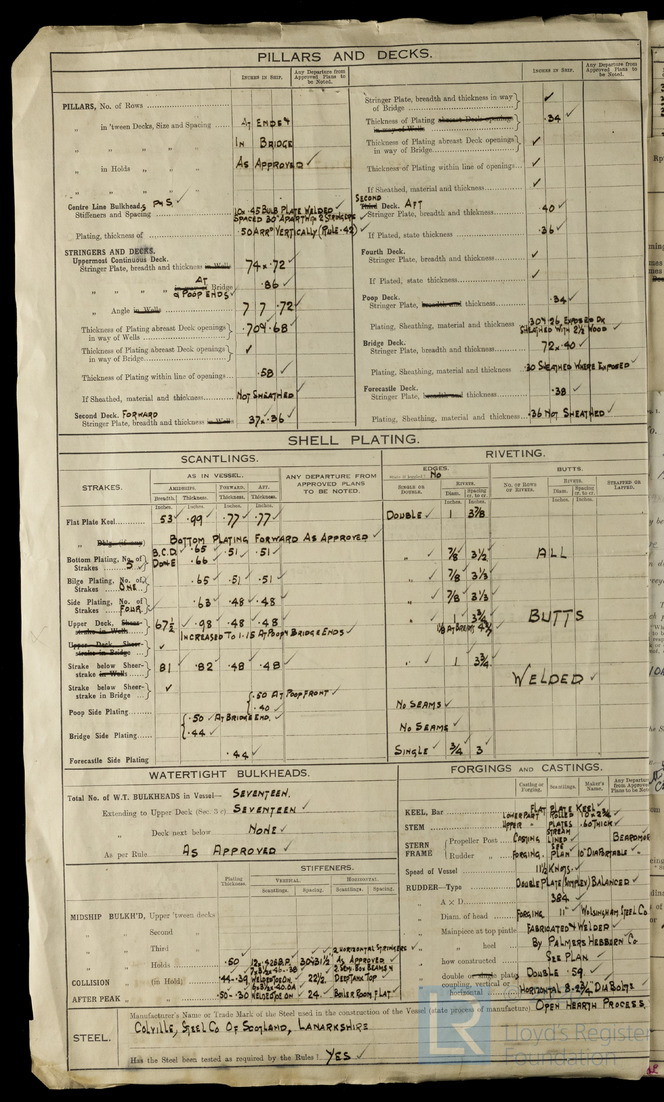 PILLARS AND DECKS.
INCHES IN SHIP.
Any Departure from Approved Plans to be Noted.
PILLARS, No. of Rows
„ in 'tween Decks, Size and Spacing
AT ENDS &
„ „ „ „
IN BRIDGE
„ in Holds „ „
AS APPROVED ✓
„ „ „ „
Centre Line Bulkheads P & S
Stiffeners and Spacing
.45 BULB PLATE WELDED
SPACED 30" APART WITH 2 STRINGERS
Plating, thickness of
.50 VERTICALLY (RULE 42)
STRINGERS AND DECKS.
Uppermost Continuous Deck.
Stringer Plate, breadth and thickness in Wells
74 x .72 ✓
„ „ „ „ AT Bridge
& POOP ENDS
.86 ✓
„ Angle in Wells
7 7 .72 ✓
Thickness of Plating abreast Deck openings in way of Wells
.68 ✓
Thickness of Plating abreast Deck openings in way of Bridge
✓
Thickness of Plating within line of openings
.58 ✓
If Sheathed, material and thickness
NOT SHEATHED ✓
Second Deck. FORWARD
Stringer Plate, breadth and thickness in Wells
37 x .36 ✓
INCHES IN SHIP.
Any Departure from Approved Plans to be Noted.
Stringer Plate, breadth and thickness in way of Bridge
✓
Thickness of Plating abreast Deck openings in way of Wells
.34 ✓
Thickness of Plating abreast Deck openings in way of Bridge
✓
Thickness of Plating within line of openings
✓
If Sheathed, material and thickness
✓
SECOND
Third Deck. AFT
Stringer Plate, breadth and thickness
.40 ✓
If Plated, state thickness
.36 ✓
Fourth Deck.
Stringer Plate, breadth and thickness
✓
If Plated, state thickness
✓
Poop Deck.
Stringer Plate, breadth and thickness
.34 ✓
Plating, Sheathing, material and thickness
.30 & .26, EXPOSED DK
SHEATHED WITH 2½" WOOD ✓
Bridge Deck.
Stringer Plate, breadth and thickness
72 x .40 ✓
Plating, Sheathing, material and thickness
.30 SHEATHED WHERE EXPOSED ✓
Forecastle Deck.
Stringer Plate, breadth and thickness
.38 ✓
Plating, Sheathing, material and thickness
.36 NOT SHEATHED ✓
SHELL PLATING.
SCANTLINGS.
RIVETING.
STRAKES.
AS IN VESSEL.
AMIDSHIPS.
FORWARD.
AFT.
Breadth.
Thickness.
Thickness.
Thickness.
Inches.
Inches.
Inches.
Inches.
ANY DEPARTURE FROM APPROVED PLANS TO BE NOTED.
EDGES.
No
SINGLE OR DOUBLE.
RIVETS.
Diam.
Spacing cr. to cr.
Inches.
Inches.
BUTTS.
NO. OF ROWS OF RIVETS.
RIVETS.
Diam.
Spacing cr. to cr.
Inches.
Inches.
STRAPPED OR LAPPED.
Flat Plate Keel
53 ✓ .99 ✓ .77 ✓ .77 ✓
DOUBLE ✓ 1 3⅞
„ Dblg. (if any)
BOTTOM PLATING FORWARD AS APPROVED ✓
Bottom Plating, No. of Strakes 5
B.C.D. ✓ .65 ✓ .51 ✓ .51 ✓
.66 ✓
„ ✓ ⅞ 3½
ALL
Bilge Plating, No. of Strakes ONE
.65 ✓ .51 ✓ .51 ✓
„ ✓ ⅞ 3⅓
Side Plating, No. of Strakes FOUR
.63 ✓ .48 ✓ .48 ✓
„ ✓ ⅞ 3⅓
Upper Deck, Sheer-strake in Wells
67½ ✓ .98 ✓ .48 ✓ .48 ✓
INCREASED TO 1.15 AT POOP & BRIDGE ENDS ✓
„ ✓ 1 3¾
BUTTS
Upper Deck Sheer-strake in Bridge
✓
Strake below Sheer-strake in Wells
81 ✓ .82 ✓ .48 ✓ .48 ✓
„ ✓ 1 3¾
WELDED ✓
Strake below Sheer-strake in Bridge
✓
Poop Side Plating
.50 AT POOP FRONT ✓
.40 ✓
NO SEAMS ✓
Bridge Side Plating
.50 ✓ AT BRIDGE END. ✓
.44 ✓
NO SEAMS ✓
Forecastle Side Plating
.44 ✓
SINGLE ✓ ¾ ✓ 3 ✓
WATERTIGHT BULKHEADS.
Total No. of W.T. BULKHEADS in Vessel— SEVENTEEN.
Extending to Upper Deck (Sec. 3 c) SEVENTEEN ✓
„ Deck next below NONE ✓
As per Rule AS APPROVED ✓
Plating Thickness.
STIFFENERS.
VERTICAL.
HORIZONTAL.
Scantlings.
Spacing.
Scantlings.
Spacing.
MIDSHIP BULKH'D, Upper 'tween decks
„ „ Second „
„ „ Third „
2 HORIZONTAL STRINGERS
„ „ Holds
.50 30" & 31½" AS APPROVED ✓
COLLISION „ (in Hold)
.44-.39 WELDED TOE ON 22½ DEEP TANK TOP ✓
AFTER PEAK „ „
.50-.30 WELDED TOE ON 24 BOILER ROOM FLAT ✓
FORGINGS AND CASTINGS.
Casting or Forging.
Scantlings.
Maker's Name.
Any Departure from Approved Plans to be Noted
KEEL, Bar
FLAT PLATE KEEL ✓
STEM
LOWER PART ROLLED 10 x 2¾ ✓
UPPER „ PLATES .60 THICK ✓
STERN FRAME
Propeller Post
CASTING STREAM LINED ✓
BEARDMORE
Rudder „
FORGING. SEE PLAN 10" DIA PORTABLE ✓
Speed of Vessel
11½ KNOTS. ✓
RUDDER—Type
DOUBLE PLATE (SIMPLEX) BALANCED ✓
„ A × D
384 ✓
„ Diam. of head
FORGING 11" WOLSINGHAM STEEL CO
„ Mainpiece at top pintle
FABRICATED & WELDED ✓
„ „ heel
BY PALMERS HEBBURN CO
„ how constructed
SEE PLAN ✓
„ double or single plate
DOUBLE .59 ✓
„ coupling, vertical or horizontal
HORIZONTAL 8-2¾ DIA BOLTS ✓
STEEL.
Manufacturer's Name or Trade Mark of the Steel used in the construction of the Vessel (state process of manufacture). OPEN HEARTH PROCESS
COLVILLE, STEEL CO OF SCOTLAND, LANARKSHIRE
Has the Steel been tested as required by the Rules? YES ✓
LR
© Lloyd's Register Foundation